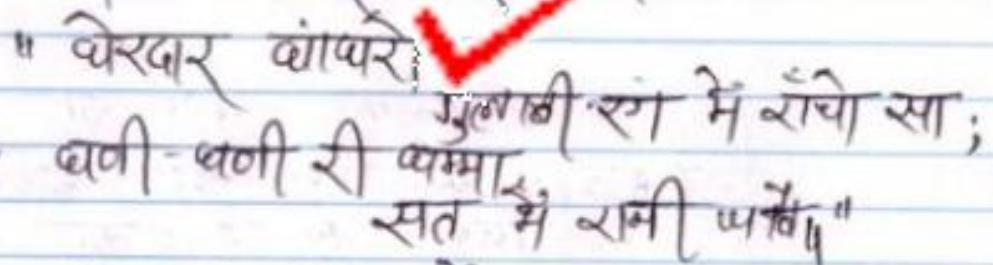 " घेरदार घांघरे
गुलाबी रंग में राँचो सा ;
घणी - घणी री घम्मा,
सत में रामी